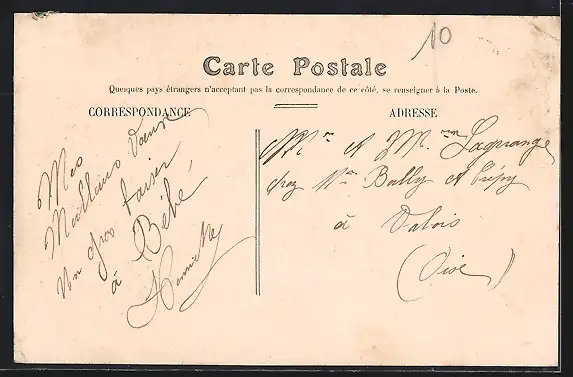 10
Carte Postale
Quelques pays étrangers n'acceptant pas la correspondance de ce côté, se renseigner à la Poste.
CORRESPONDANCE
ADRESSE
Mes
Meilleurs Vœux
Un gros baiser
à Bébé
Henriette
Mr et Mme Lagrange
chez Mr Bally et Crépy
à Valois
(Oise)